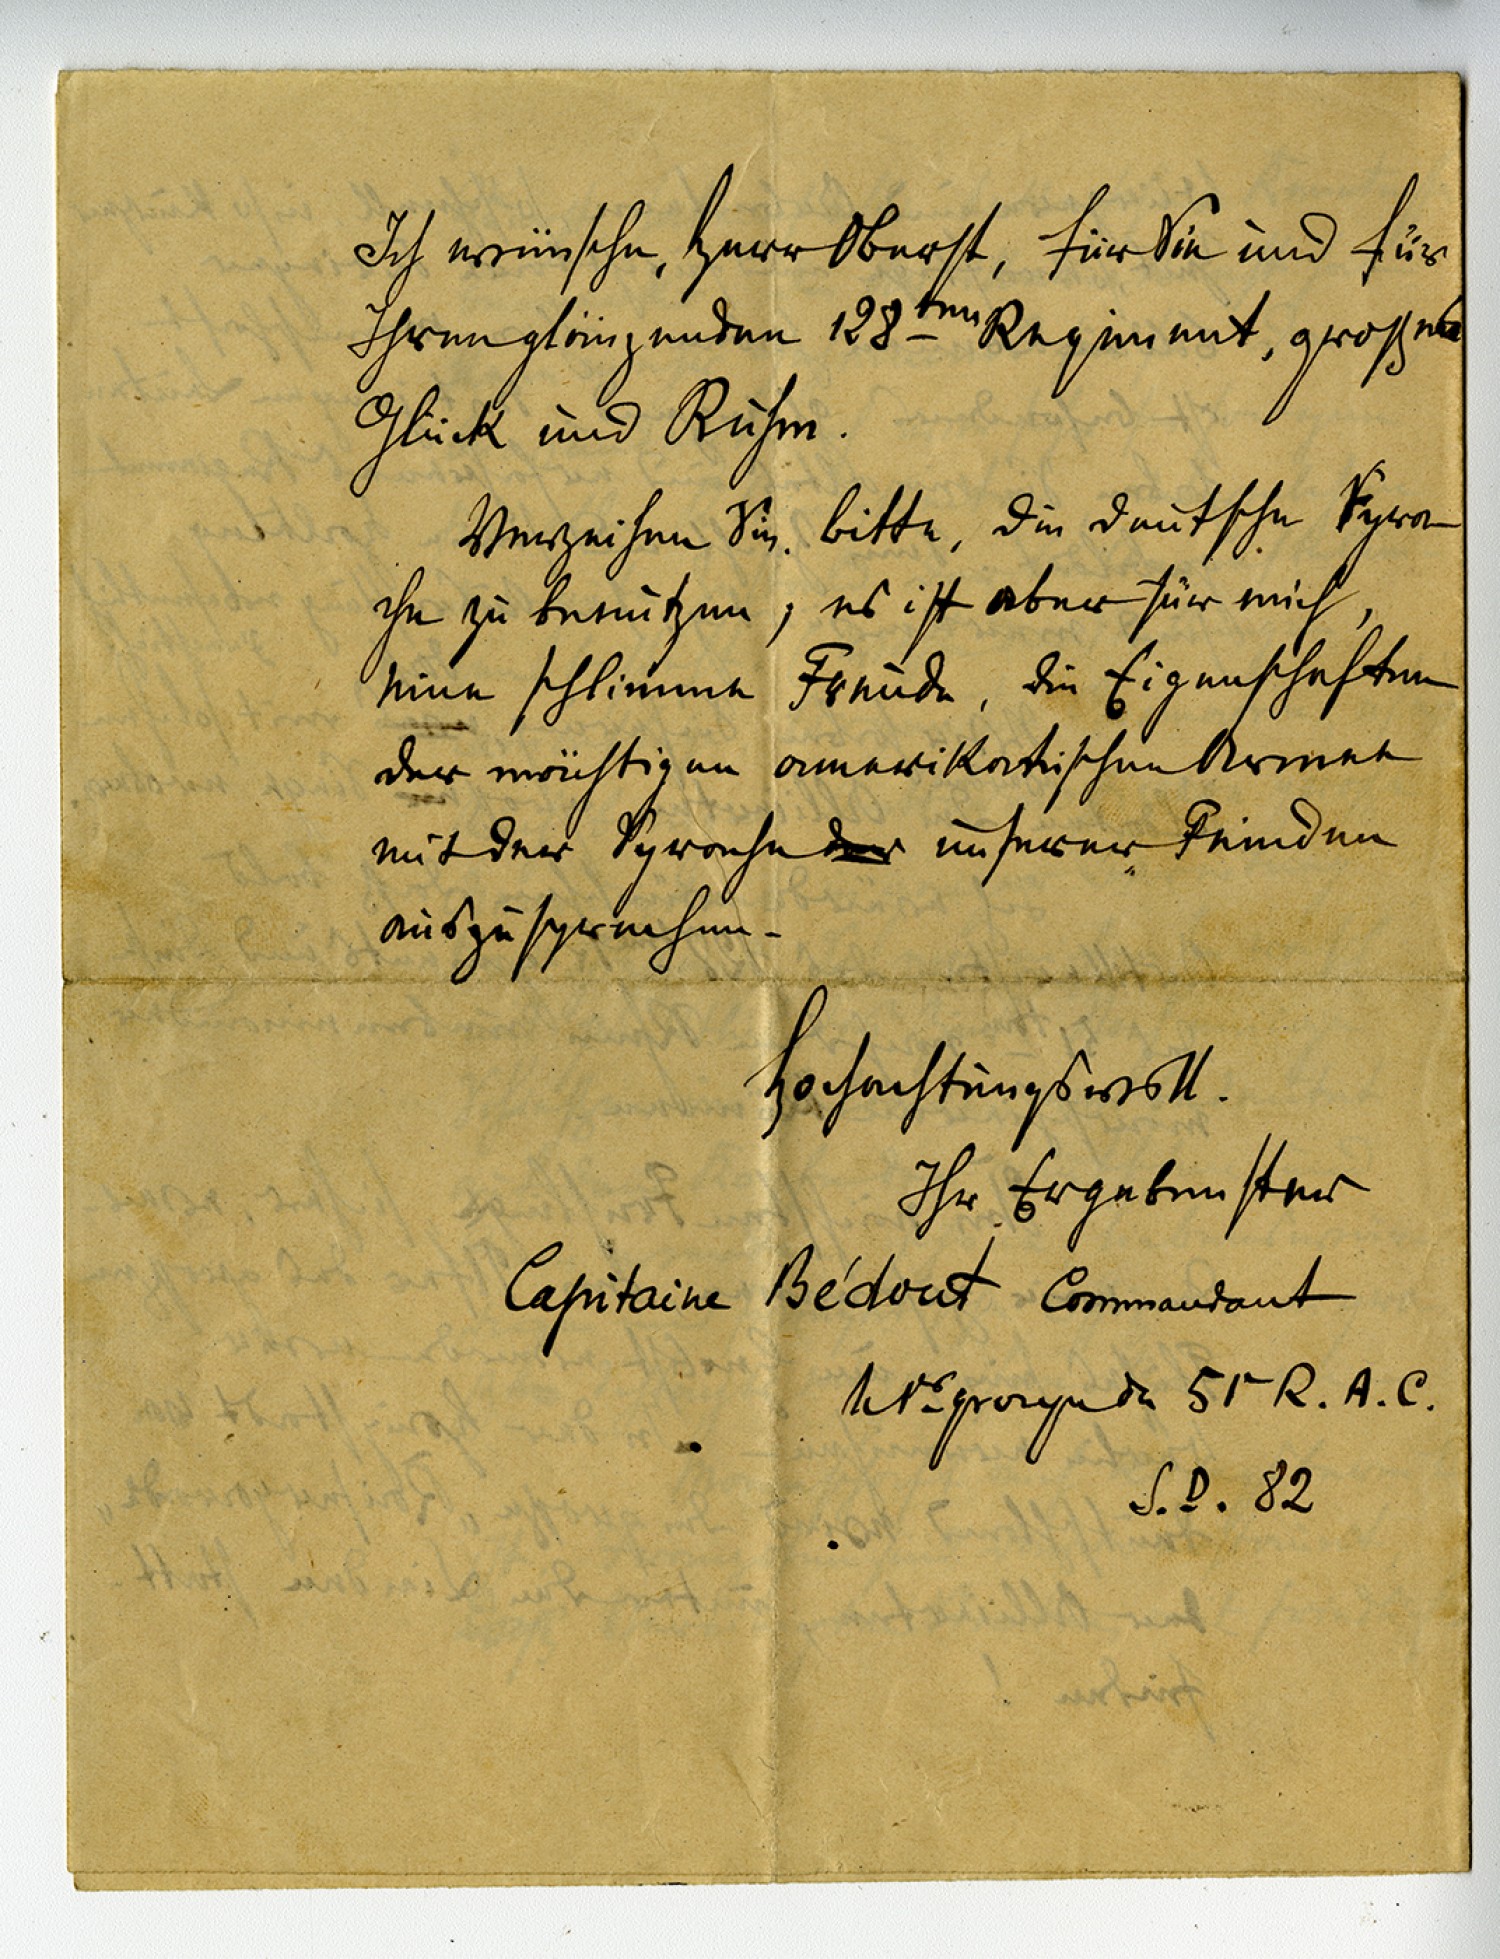 Ich wünsche, Herr Oberst, für Sie und für
Ihren glänzenden 128ten Regiment, großes
Glück und Ruhm.
Verzeihen Sie, bitte, die deutsche Spra-
che zu benutzen; es ist aber für mich,
eine schlimme Freude, die Eigenschaften
der mächtigen amerikanischen Armee
mit der Sprache der unserer Feinden
auszusprechen.
Hochachtungsvoll.
Ihr Ergebenster
Capitaine Bédout Commandant
groupe du 51 R. A. C.
S.P. 82